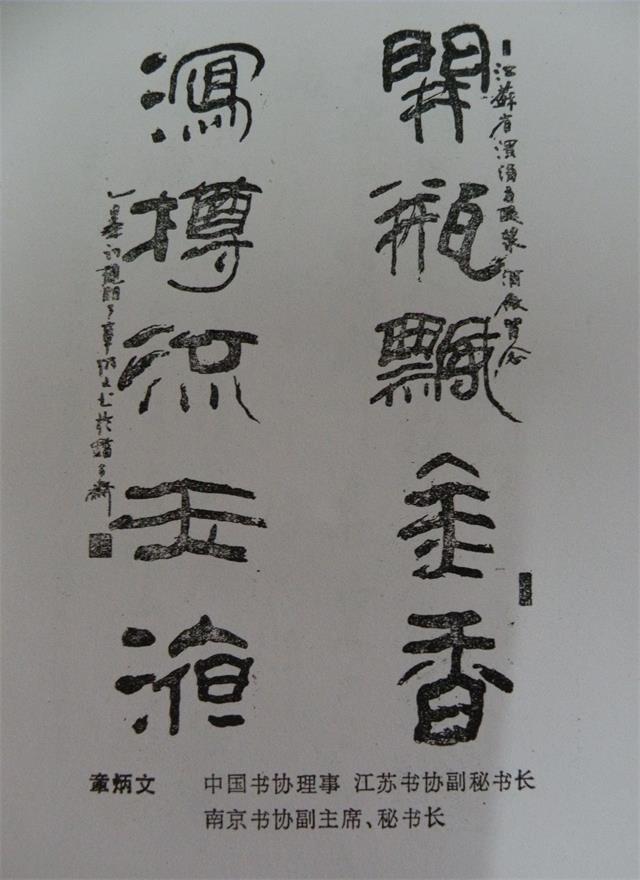 江蘇省 酒廠留念
開瓶飄金香
瀉樽流玉液
章炳文书於
章炳文 中国书协理事 江苏书协副秘书长
南京书协副主席、秘书长